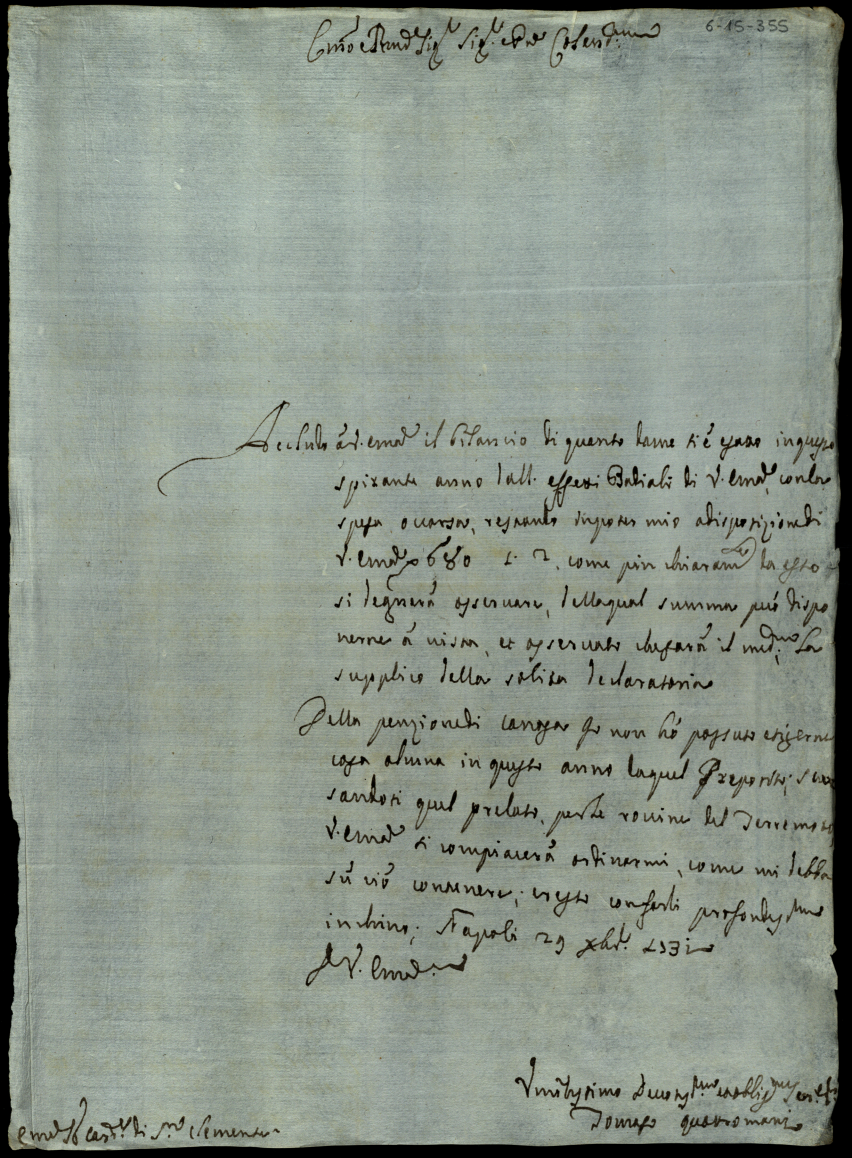 6-15-355
Em̃o e Rmo Sig.r Sig.r e Pne Colend.mo
Accludo à V. Em.a il bilancio di quanto da me si è esatto in questo
spirante anno dall' effetti Badiali di V. Em.a, con la
spesa occorsa, restando in poter mio a disposizione di
V. Em.a 680 come più chiaram.te da esso
si degnerà osservare, della qual summa può dispo
nerne à vista, et osservato che sarà il med.mo La
supplico della solita declaratoria
Della penzione di Canosa non hò possuto esigerne
cosa alcuna in questo anno da quel Preposito, scu
sandosi quel prelato, per le rovine del Terremoto,
V. Em.a si compiacerà ordinarmi, come mi debba
sù ciò contenere; e resto con farli profondiss.mo
inchino; Napoli 29 Xbr.e 1731
Di V. Em.a
Umilissimo Devotiss.mo et obblig.mo Ser.re
Tomaso Quattromani
Em.o Card.l di S. Clemente